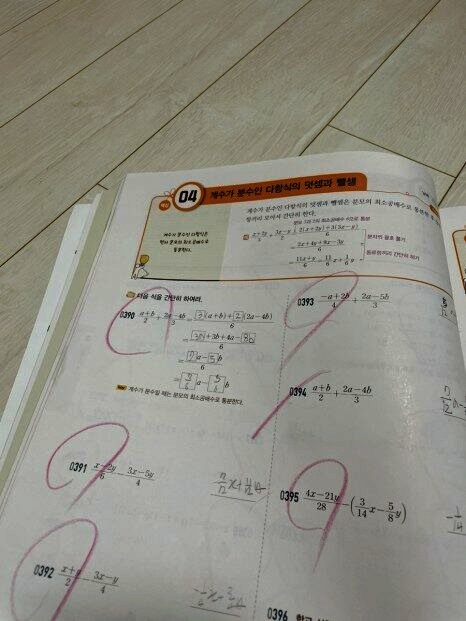 04 계수가 분수인 다항식의 덧셈과 뺄셈
계수가 분수인 다항식은
먼저 분모의 최소공배수로
통분한다.
계수가 분수인 다항식의 덧셈과 뺄셈은 분모의 최소공배수로 통분한 후
동류항끼리 모아서 간단히 한다.
분모 3과 2의 최소공배수 6으로 통분
예 (x+2y)/3 + (3x-y)/2 = (2(x+2y)+3(3x-y))/6
= (2x+4y+9x-3y)/6
분자의 괄호 풀기
= (11x+y)/6 = 11/6 x + 1/6 y
동류항끼리 간단히 하기
다음 식을 간단히 하여라.
0390 (a+b)/2 + (2a-4b)/3 = (3(a+b)+2(2a-4b))/6
= (3a+3b+4a-8b)/6
= (7a-5b)/6
= 7/6 a - 5/6 b
계수가 분수일 때는 분모의 최소공배수로 통분한다.
0391 (x-2y)/6 - (3x-5y)/4
0392 (x+y)/2 - (3x-y)/4
0393 (-a+2b)/4 + (2a-5b)/3
0394 (a+b)/2 + (2a-4b)/3
0395 (4x-21y)/28 - (3/14 x - 5/8 y)
0396